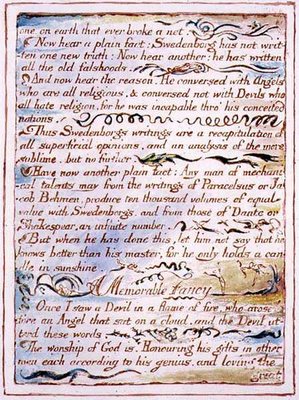 one on earth that ever broke a net.
Now hear a plain fact: Swedenborg has not writ-
ten one new truth: Now hear another: he has written
all the old falshoods.
And now hear the reason. He conversed with Angels
who are all religious, & conversed not with Devils who
all hate religion, for he was incapable thro' his conceited
notions.
Thus Swedenborgs writings are a recapitulation of
all superficial opinions, and an analysis of the more
sublime, but no further.
Have now another plain fact: Any man of mechani-
cal talents may from the writings of Paracelsus or Ja-
cob Behmen, produce ten thousand volumes of equal
value with Swedenborg's, and from those of Dante or
Shakespear, an infinite number.
But when he has done this, let him not say that he
knows better than his master, for he only holds a can-
dle in sunshine.
A Memorable Fancy
Once I saw a Devil in a flame of fire, who arose
before an Angel that sat on a cloud, and the Devil ut-
terd these words.
The worship of God is, Honouring his gifts in other
men each according to his genius, and loving the
great